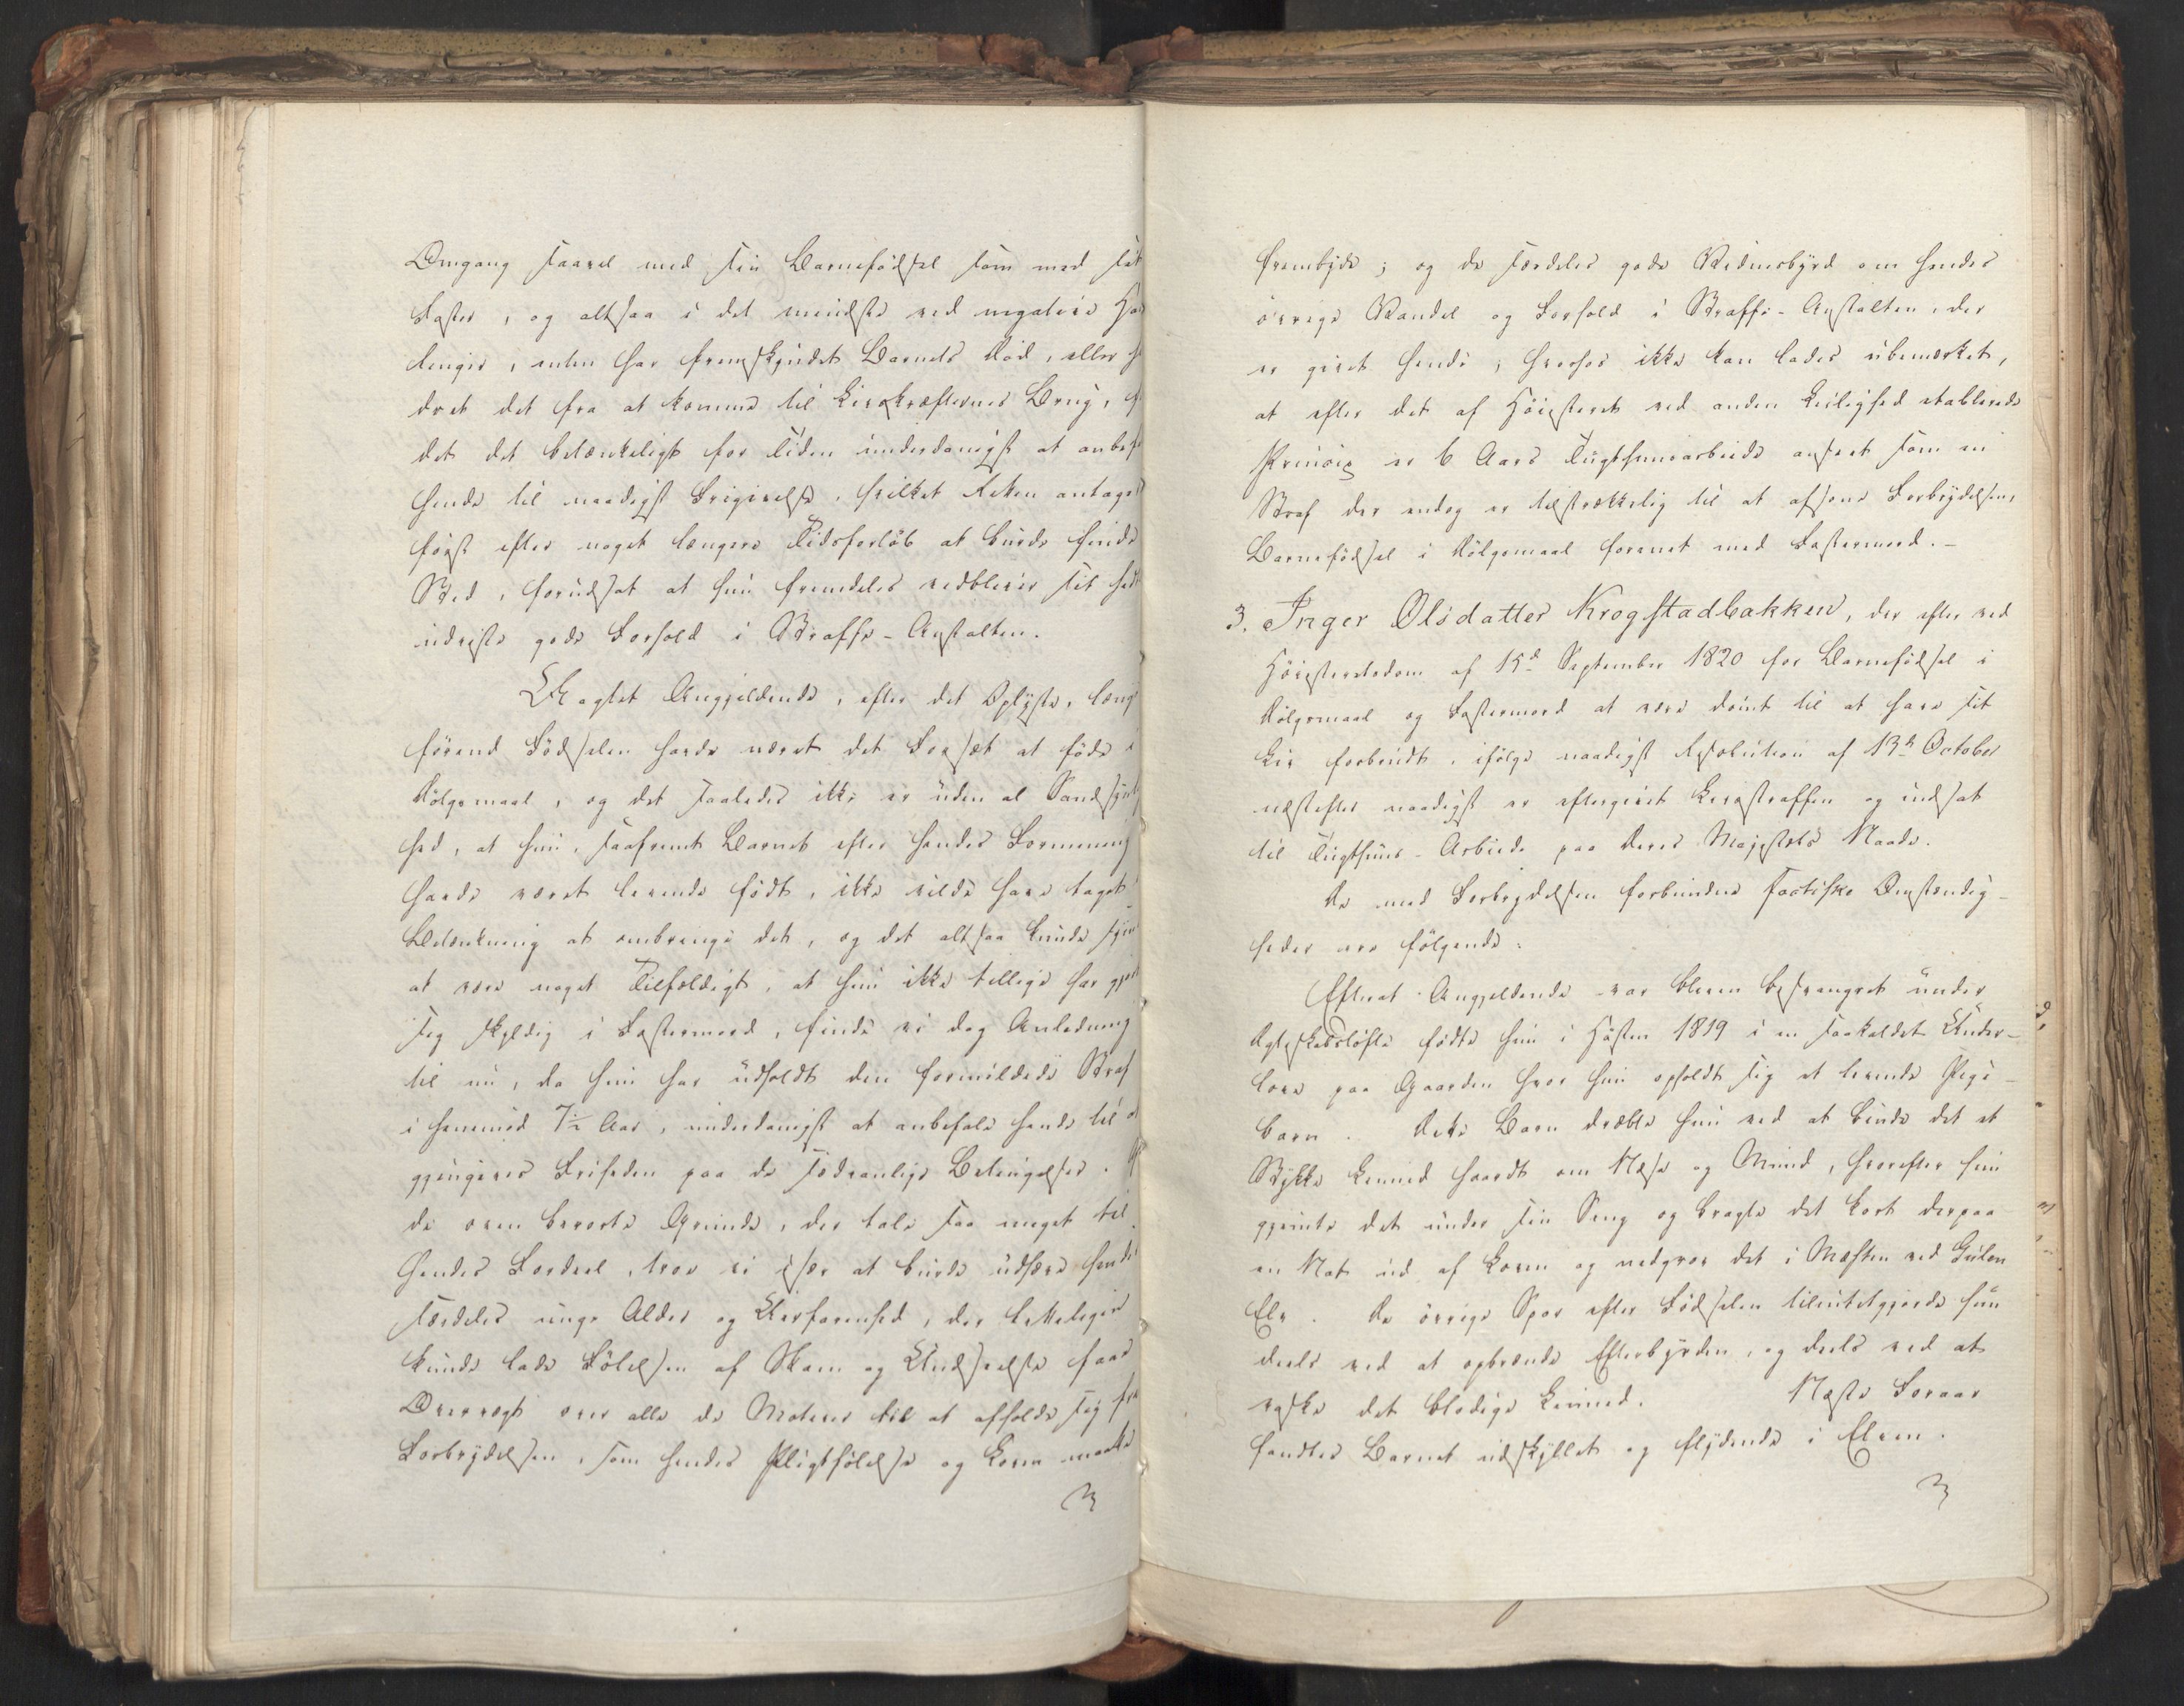 Omgang saavel med sin Barnefödsel som med sit
Foster, og altsaa i det mindste ved negative Ha
linger, enten har fremskyndet Barnets Död, eller
dret det fra at komme til Livskræfternes Brug,
det det betænkeligt for Tiden underdanigst at anbef
hende til naadigst Frigivelse, hvilket Retten antager
först efter noget længere Tidsforlöb at burde finde
Sted, forudsat at hun fremdeles vedbliver sit hid
udviste gode Forhold i Straffe-Anstalten.
Uagtet Angjeldende, efter det Oplyste, længe
förend Födselen havde næret det Forsæt at föde i
Dölgsmaal, og det saaledes ikke er uden al Sandsyn
hed, at hun, saafremt Barnet efter hendes Formening
havde været levende födt, ikke vilde have taget
Betænkning at ombringe det, og det altsaa kunde syn
at være noget Tilfældigt, at hun ikke tillige har gjort
sig skyldig i Fostermord, finde vi dog Anledning
til nu, da hun har udholdt den formildede Straf
i henimod 7½ Aar, underdanigst at anbefale hende til
gjengives Friheden paa de sædvanlige Betingelser.
de oven berörte Grunde, der tale saa meget til
hendes Fordeel, troe vi især at burde udhæve hendes
særdeles unge Alder og Uerfarenhed, der letteligen
kunde lade Fölelsen af Skam og Undseelse faae
Overvægt over alle de Motiver til at afholde sig fra
Forbrydelsen, som hendes Pligtfölelse og Loven maatte
frembyde; og de særdeles gode Vidnesbyrd om hendes
övrige Vandel og Forhold i Straffe-Anstalten, der
er givet hende; hvorhos ikke kan lades ubemærket,
at efter det af Höiesteret ved anden Leilighed etablerede
Princip er 6 Aars Tugthuusarbeide anseet som en
Straf der endog er tilstrækkelig til at afsone Forbrydelsen,
Barnefödsel i Dölgsmaal forenet med Fostermord.-
3. Inger Olsdatter Krogstadbakken, der efter ved
Höiesteretsdom af 15de September 1820 for Barnefödsel i
Dölgsmaal og Fostermord at være dömt til at have sit
Liv forbrudt, ifölge naadigst Resolution af 13de October
næstefter naadigst er eftergivet Livsstraffen og indsat
til Tugthuus-Arbeide paa Deres Majestæts Naade.
De med Forbrydelsen forbundne factiske Omstændig-
heder ere fölgende:
Efterat Angjeldende var bleven besvangret under
Ægteskabslöfte födte hun i Hösten 1819 i en saakaldet Under-
love paa Gaarden hvor hun opholdt sig et levende Pige-
barn. Dette Barn dræbte hun ved at binde det et
Stykke Linned haardt om Næse og Mund, hvorefter hun
gjemte det under sin Seng og bragte det kort derpaa
en Nat ud af Loven og nedgrov det i Mæften ved Gulen
Elv. De övrige Spor efter Födselen tilintetgjorde hun
deels ved at opbrænde Efterbyrden, og deels ved at
vaske det blodige Linned. Næste Foraar
fandtes Barnet udskyllet og flydende i Elven.